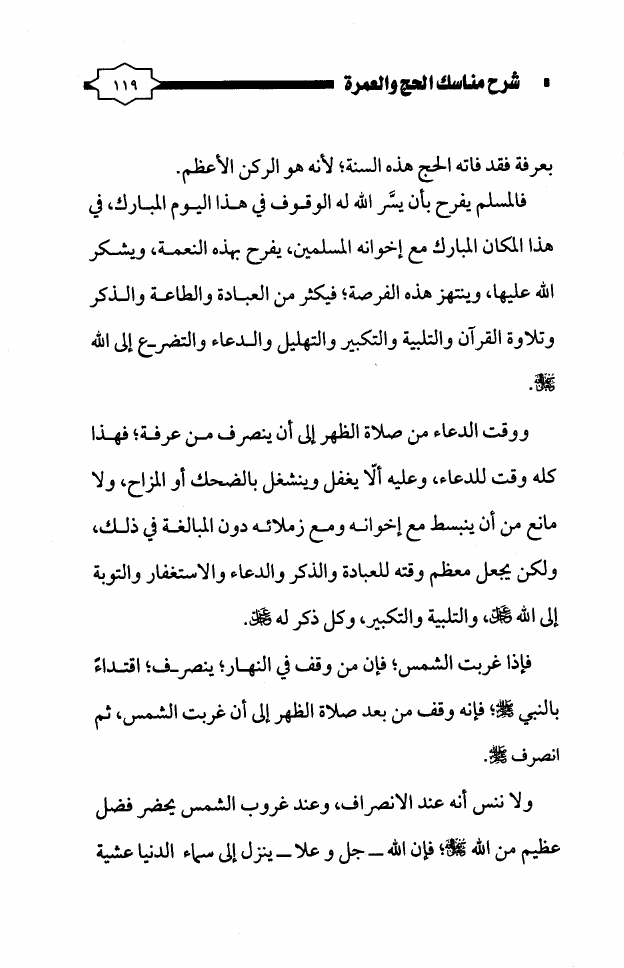 شرح مناسك الحج والعمرة
١١٩
بعرفة فقد فاته الحج هذه السنة؛ لأنه هو الركن الأعظم.
فالمسلم يفرح بأن يسَّر الله له الوقوف في هذا اليوم المبارك، في
هذا المكان المبارك مع إخوانه المسلمين، يفرح بهذه النعمة، ويشكر
الله عليها، وينتهز هذه الفرصة؛ فيكثر من العبادة والطاعة والذكر
وتلاوة القرآن والتلبية والتكبير والتهليل والدعاء والتضرع إلى الله
.
ووقت الدعاء من صلاة الظهر إلى أن ينصرف من عرفة؛ فهذا
كله وقت للدعاء، وعليه ألّا يغفل وينشغل بالضحك أو المزاح، ولا
مانع من أن ينبسط مع إخوانه ومع زملائه دون المبالغة في ذلك،
ولكن يجعل معظم وقته للعبادة والذكر والدعاء والاستغفار والتوبة
إلى الله ، والتلبية والتكبير، وكل ذكر له .
فإذا غربت الشمس؛ فإن من وقف في النهار؛ ينصرف؛ اقتداءً
بالنبي ﷺ؛ فإنه وقف من بعد صلاة الظهر إلى أن غربت الشمس، ثم
انصرف ﷺ.
ولا ننس أنه عند الانصراف، وعند غروب الشمس يحضر فضل
عظيم من الله ؛ فإن الله ــ جل و علا ــ ينزل إلى سماء الدنيا عشية